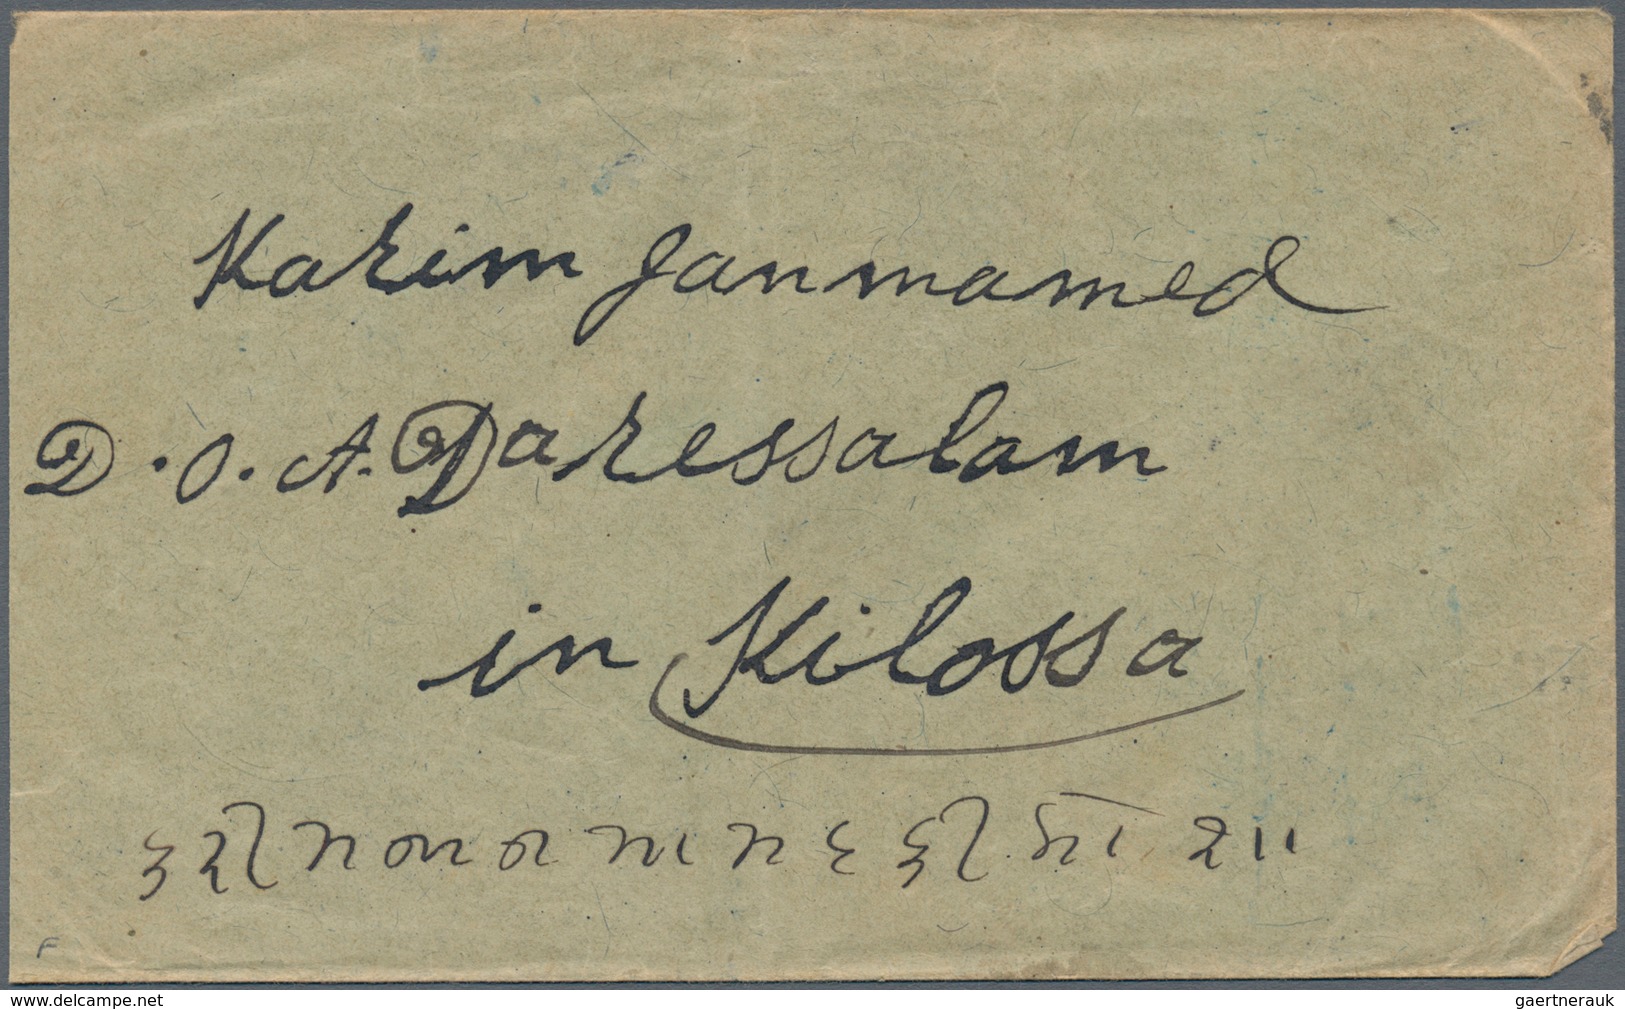 Karim Janmamed
D.O.A. Daressalam
in Kilossa
કરીમ જાનમામદ કીલોશા
F
www.delcampe.net
gaertnerauk